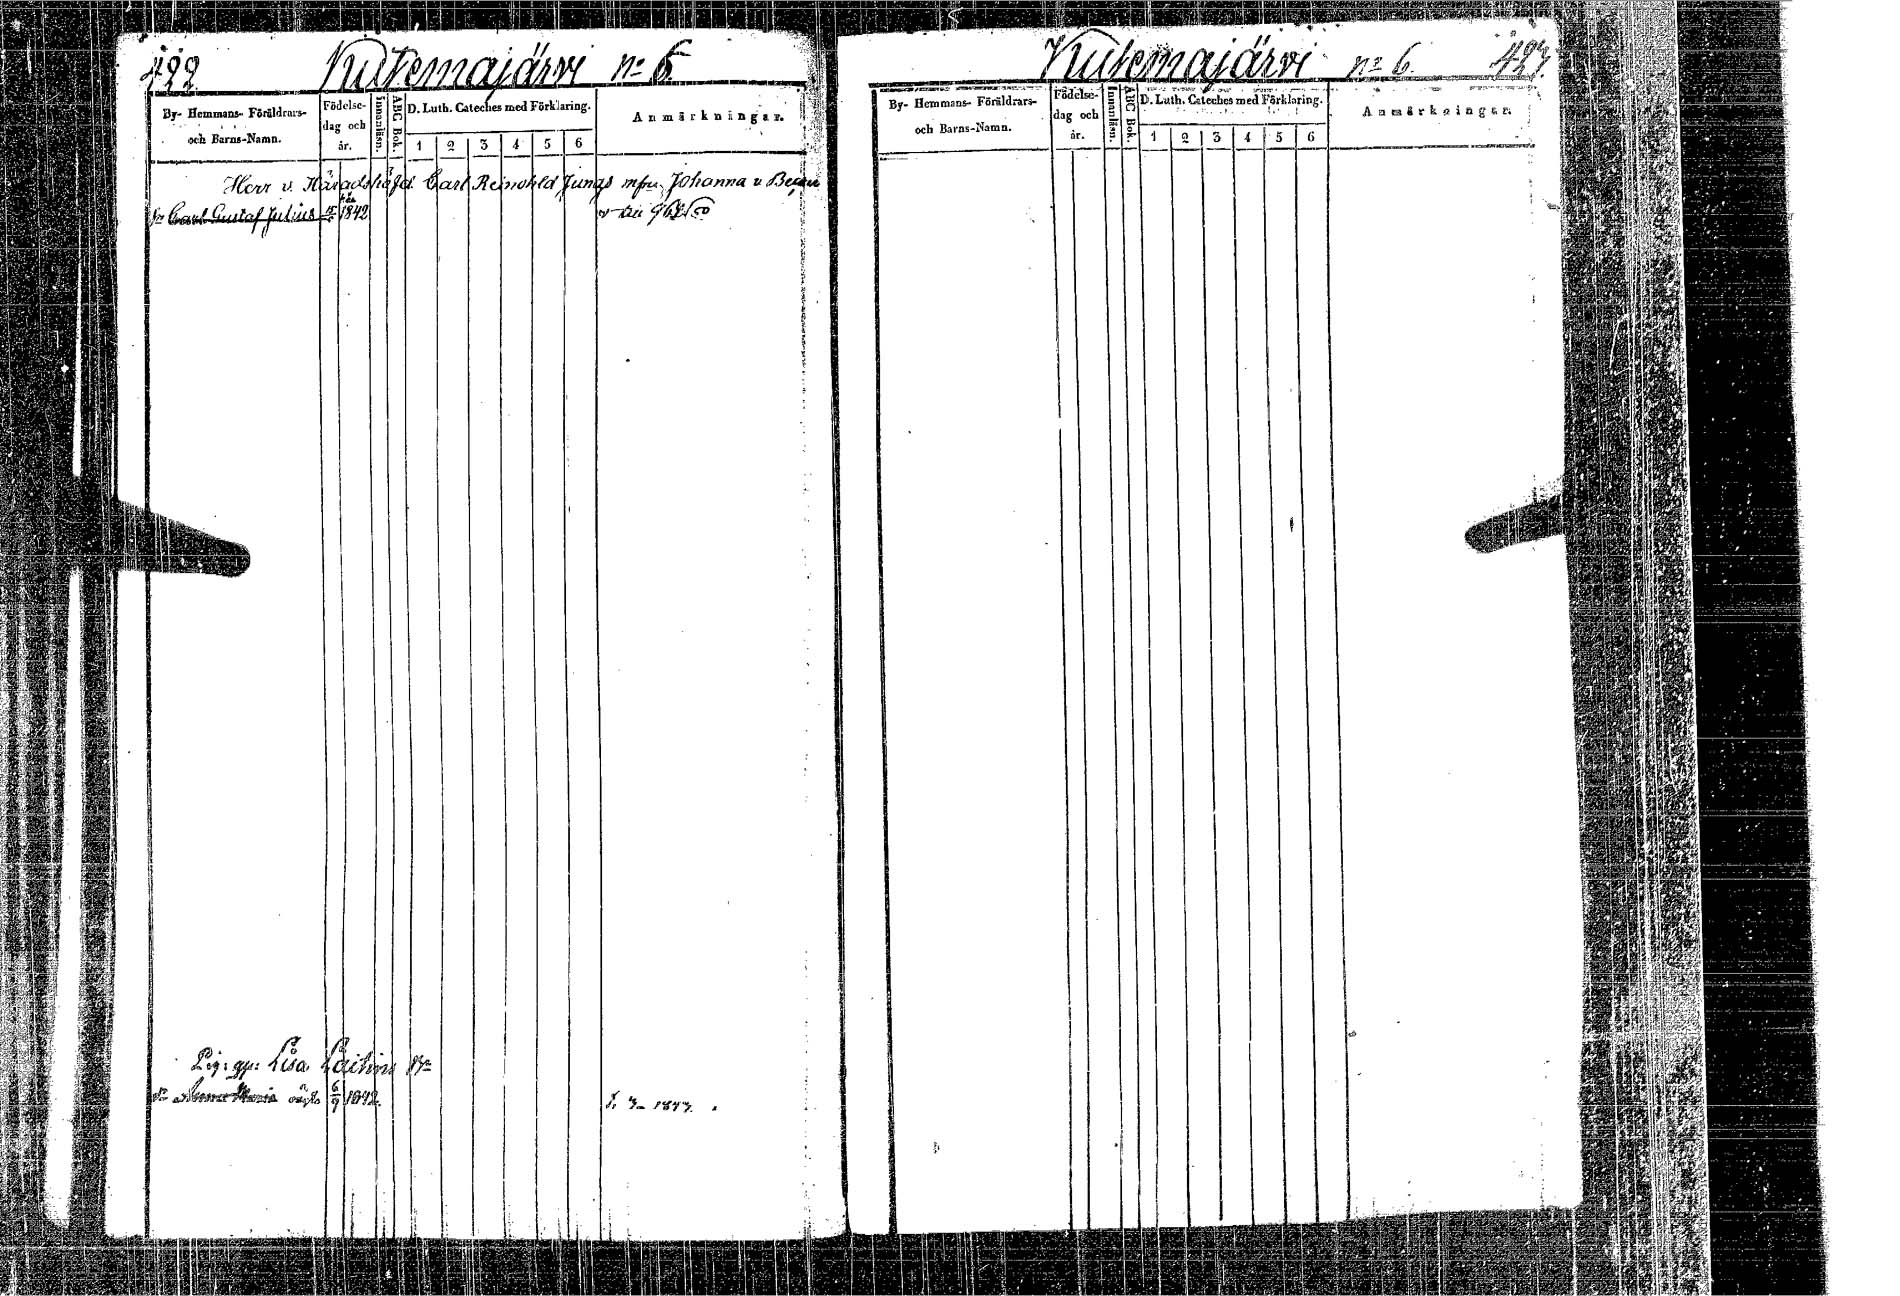 422 Kutemajärvi no 6.
By- Hemmans- Föräldrars- och Barns-Namn. Födelse-dag och år. Innanläsn. ABC Bok. D. Luth. Cateches med Förklaring. 1 2 3 4 5 6 Anmärkningar.
Herr v. Häradshöfd. Carl Reinohld Jungs mfru Johanna v Becker
Carl Gustaf Julius 1842
Pig: gp: Lisa
Maria 6/9 1842.
1843.
Kutemajärvi no 6. 423.
By- Hemmans- Föräldrars- och Barns-Namn. Födelse-dag och år. Innanläsn. ABC Bok. D. Luth. Cateches med Förklaring. 1 2 3 4 5 6 Anmärkningar.